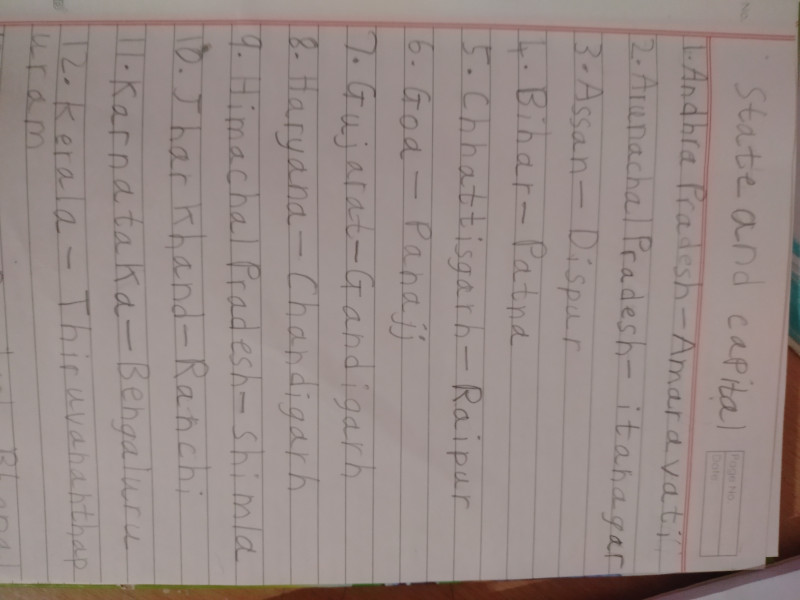 State and capital
Page No.
Date
1. Andhra Pradesh - Amaravati
2. Arunachal Pradesh - itanagar
3. Assan - Dispur
4. Bihar - Patna
5. Chhattisgarh - Raipur
6. Goa - Panajj
7. Gujarat - Gandigarh
8. Haryana - Chandigarh
9. Himachal Pradesh - Shimla
10. Jharkhand - Ranchi
11. Karnataka - Bengaluru
12. Kerala - Thiruvananthap
uram